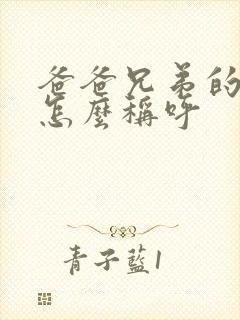 爸爸兄弟的
怎麼稱呼
青子藍1